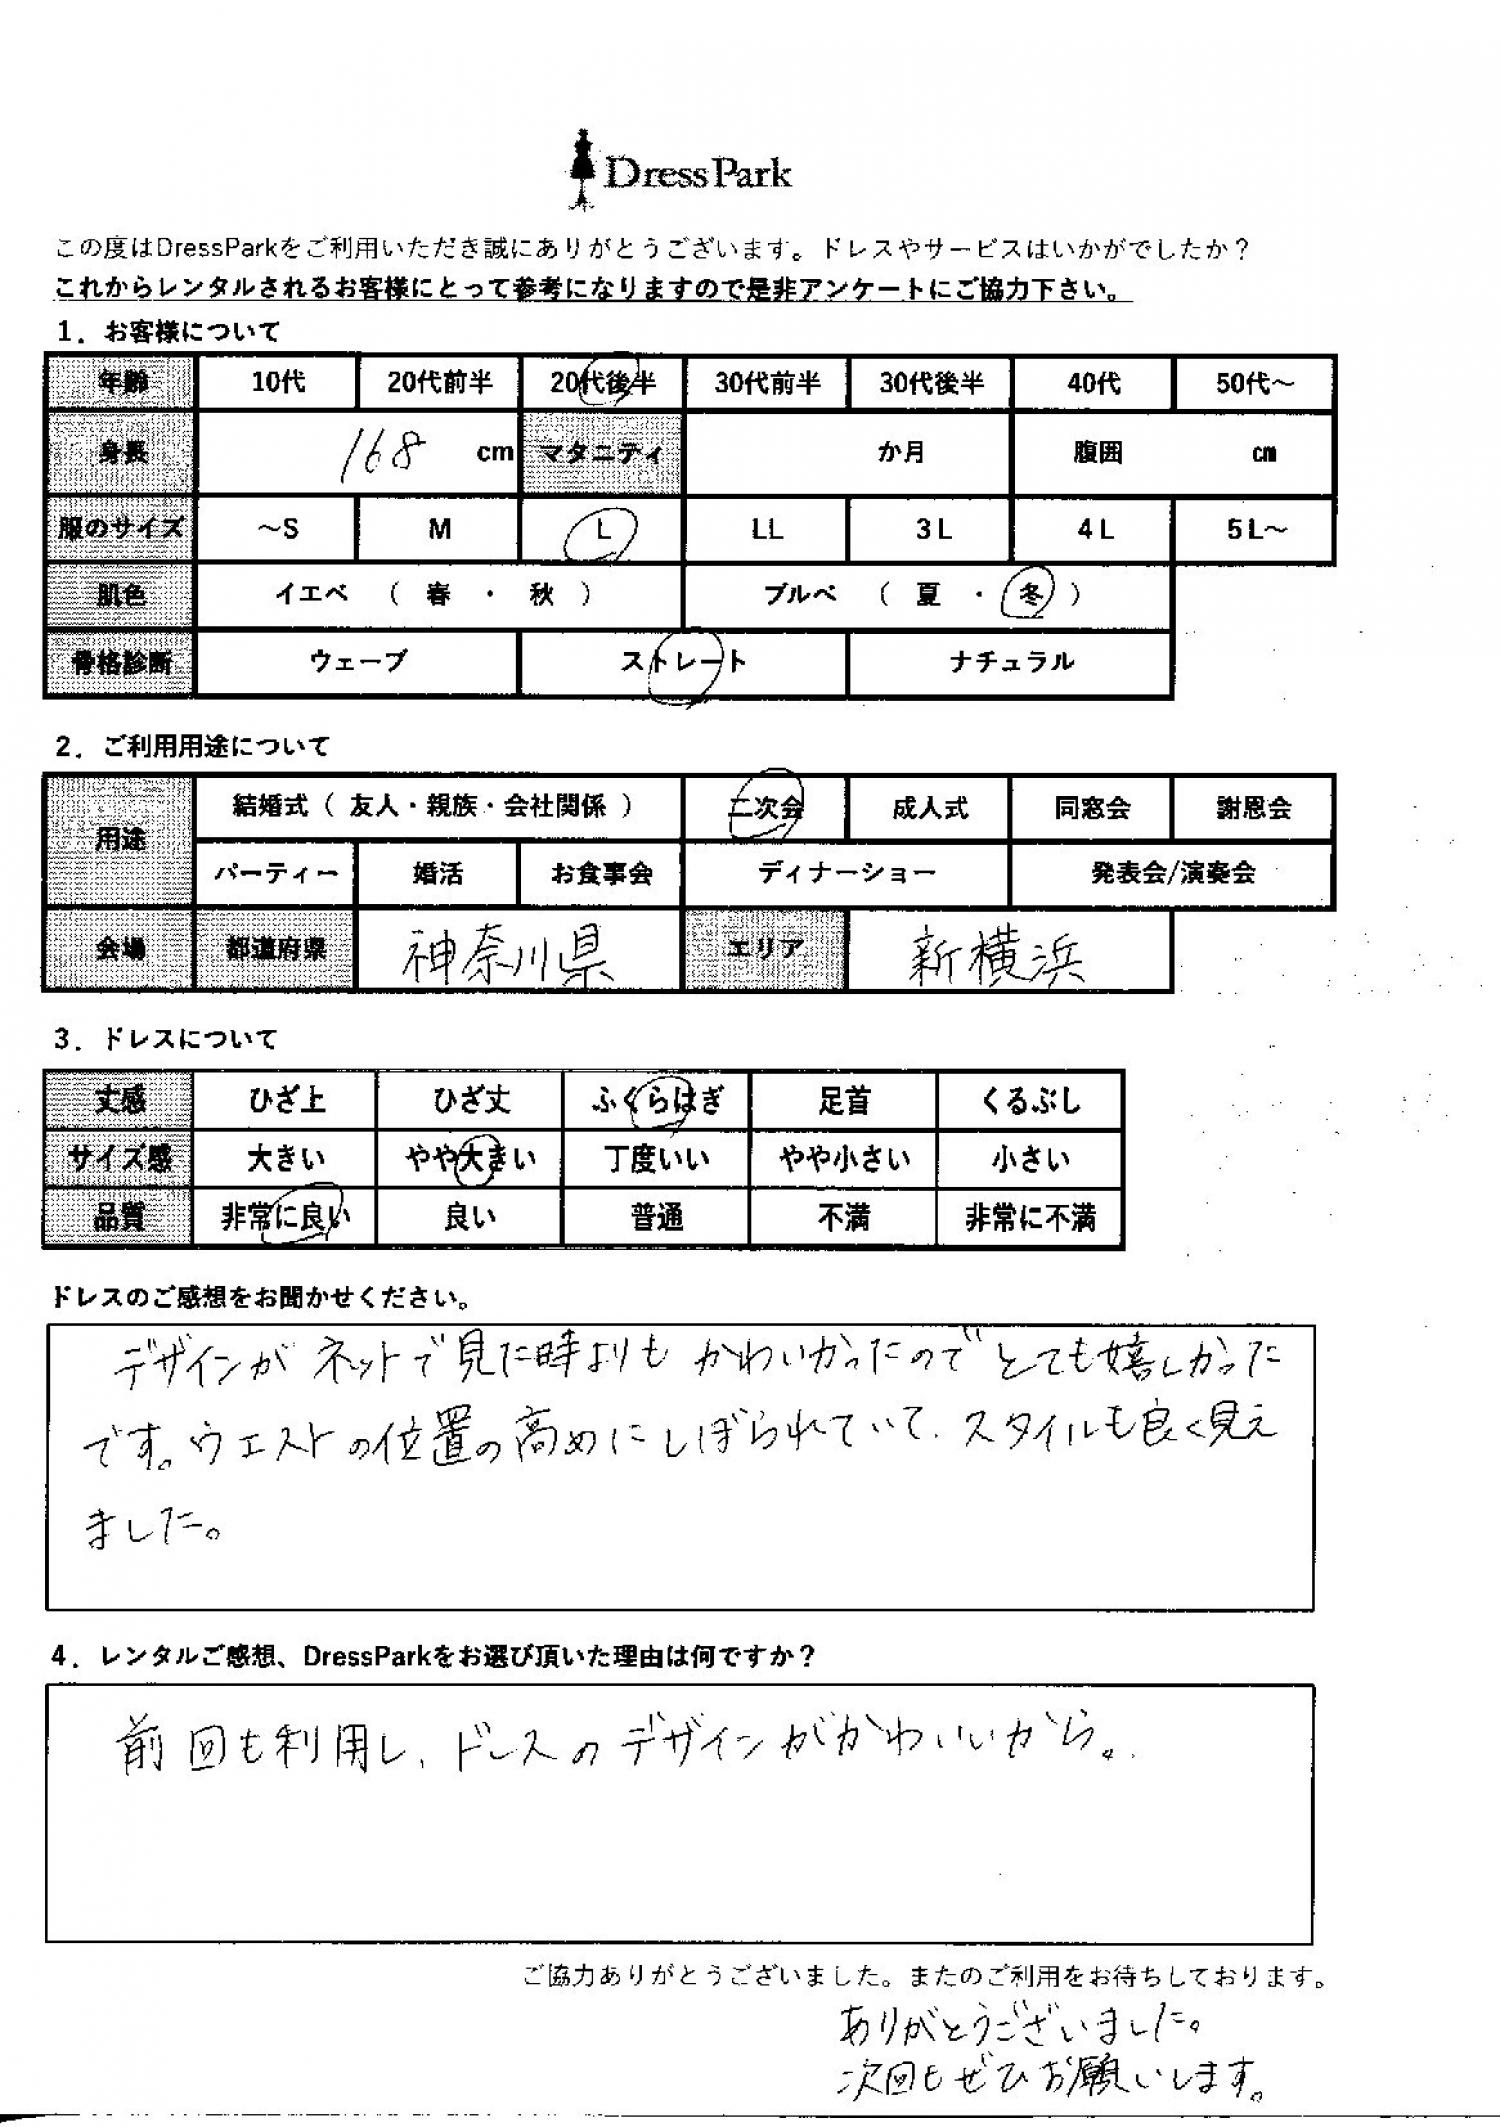 DressPark
この度はDressParkをご利用いただき誠にありがとうございます。ドレスやサービスはいかがでしたか？
これからレンタルされるお客様にとって参考になりますので是非アンケートにご協力下さい。
1．お客様について
年齢 10代 20代前半 20代後半 30代前半 30代後半 40代 50代～
身長 168 cm マタニティ か月 腹囲 cm
服のサイズ ～S M L LL 3L 4L 5L～
肌色 イエベ （ 春 ・ 秋 ） ブルベ （ 夏 ・ 冬 ）
骨格診断 ウェーブ ストレート ナチュラル
2．ご利用用途について
用途 結婚式（ 友人・親族・会社関係 ） 二次会 成人式 同窓会 謝恩会
パーティー 婚活 お食事会 ディナーショー 発表会/演奏会
会場 都道府県 神奈川県 エリア 新横浜
3．ドレスについて
丈感 ひざ上 ひざ丈 ふくらはぎ 足首 くるぶし
サイズ感 大きい やや大きい 丁度いい やや小さい 小さい
品質 非常に良い 良い 普通 不満 非常に不満
ドレスのご感想をお聞かせください。
デザインがネットで見た時よりもかわいかったのでとても嬉しかった
です。ウエストの位置の高めにしぼられていて、スタイルも良く見え
ました。
4．レンタルご感想、DressParkをお選び頂いた理由は何ですか？
前回も利用し、ドレスのデザインがかわいいから。
ご協力ありがとうございました。またのご利用をお待ちしております。
ありがとうございました。
次回もぜひお願いします。